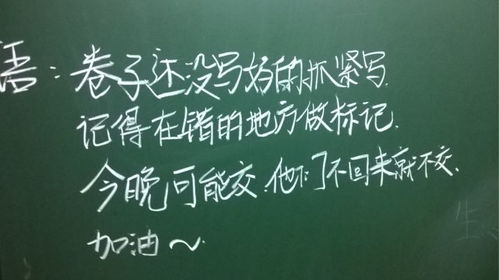 语：卷子还没写好的抓紧写.
记得在错的地方做标记.
今晚可能交.他们不回来就不交.
加油～